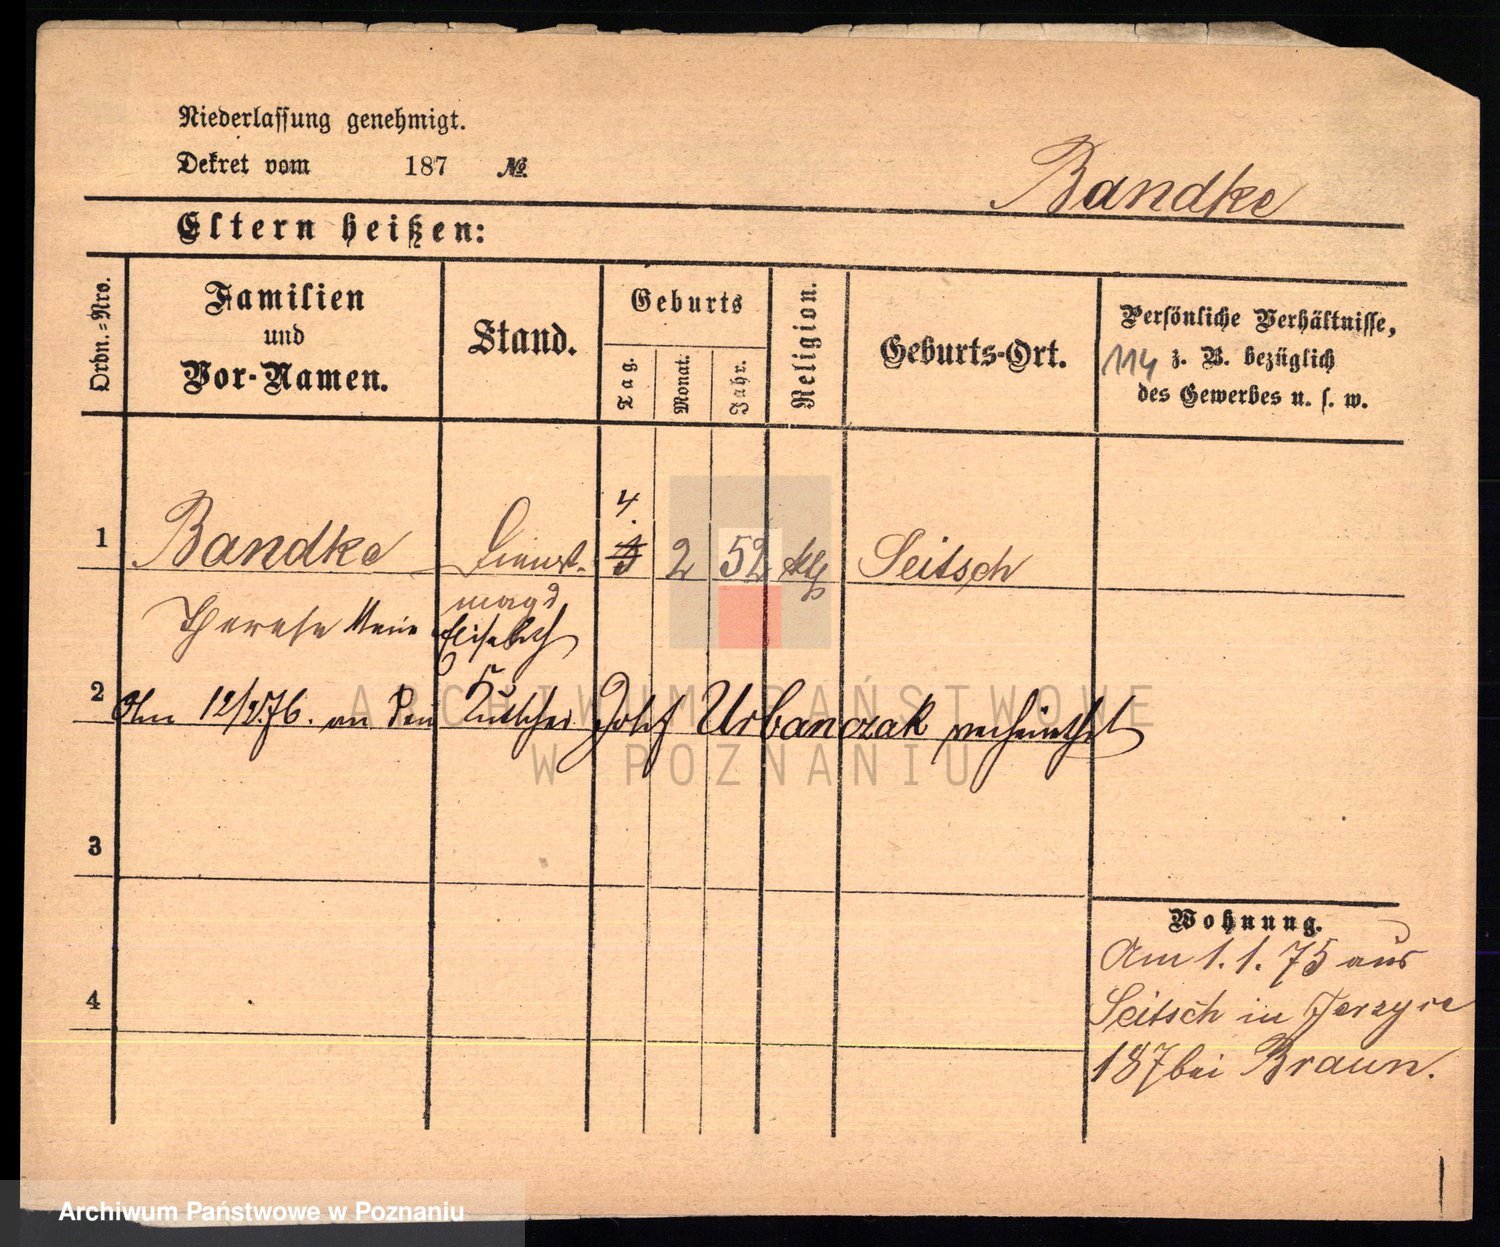 Niederlassung genehmigt.
Dekret vom 187 №
Bandke
Eltern heißen:
Ordn.=Nro.
Familien
und
Vor-Namen.
Stand.
Geburts
Tag.
Monat.
Jahr.
Religion.
Geburts-Ort.
Persönliche Verhältnisse,
114 z. B. bezüglich
des Gewerbes u. s. w.
4.
1 Bandke Dienst- 3 2 52 kth Seitsch
magd
Therese Marie Elisabeth
2 Am 12/2.76. an den Kutscher Josef Urbanczak verheirathet
3
Wohnung.
Am 1.1.75 aus
Seitsch in Jerzyce
187 bei Braun.
4
ARCHIWUM PAŃSTWOWE
W POZNANIU
Archiwum Państwowe w Poznaniu